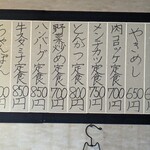 やきめし 650円
肉コロッケ定食 700円
メンチカツ定食 750円
とんかつ定食 800円
野菜炒め定食 700円
ハンバーグ定食 850円
牛スタミナ定食 850円